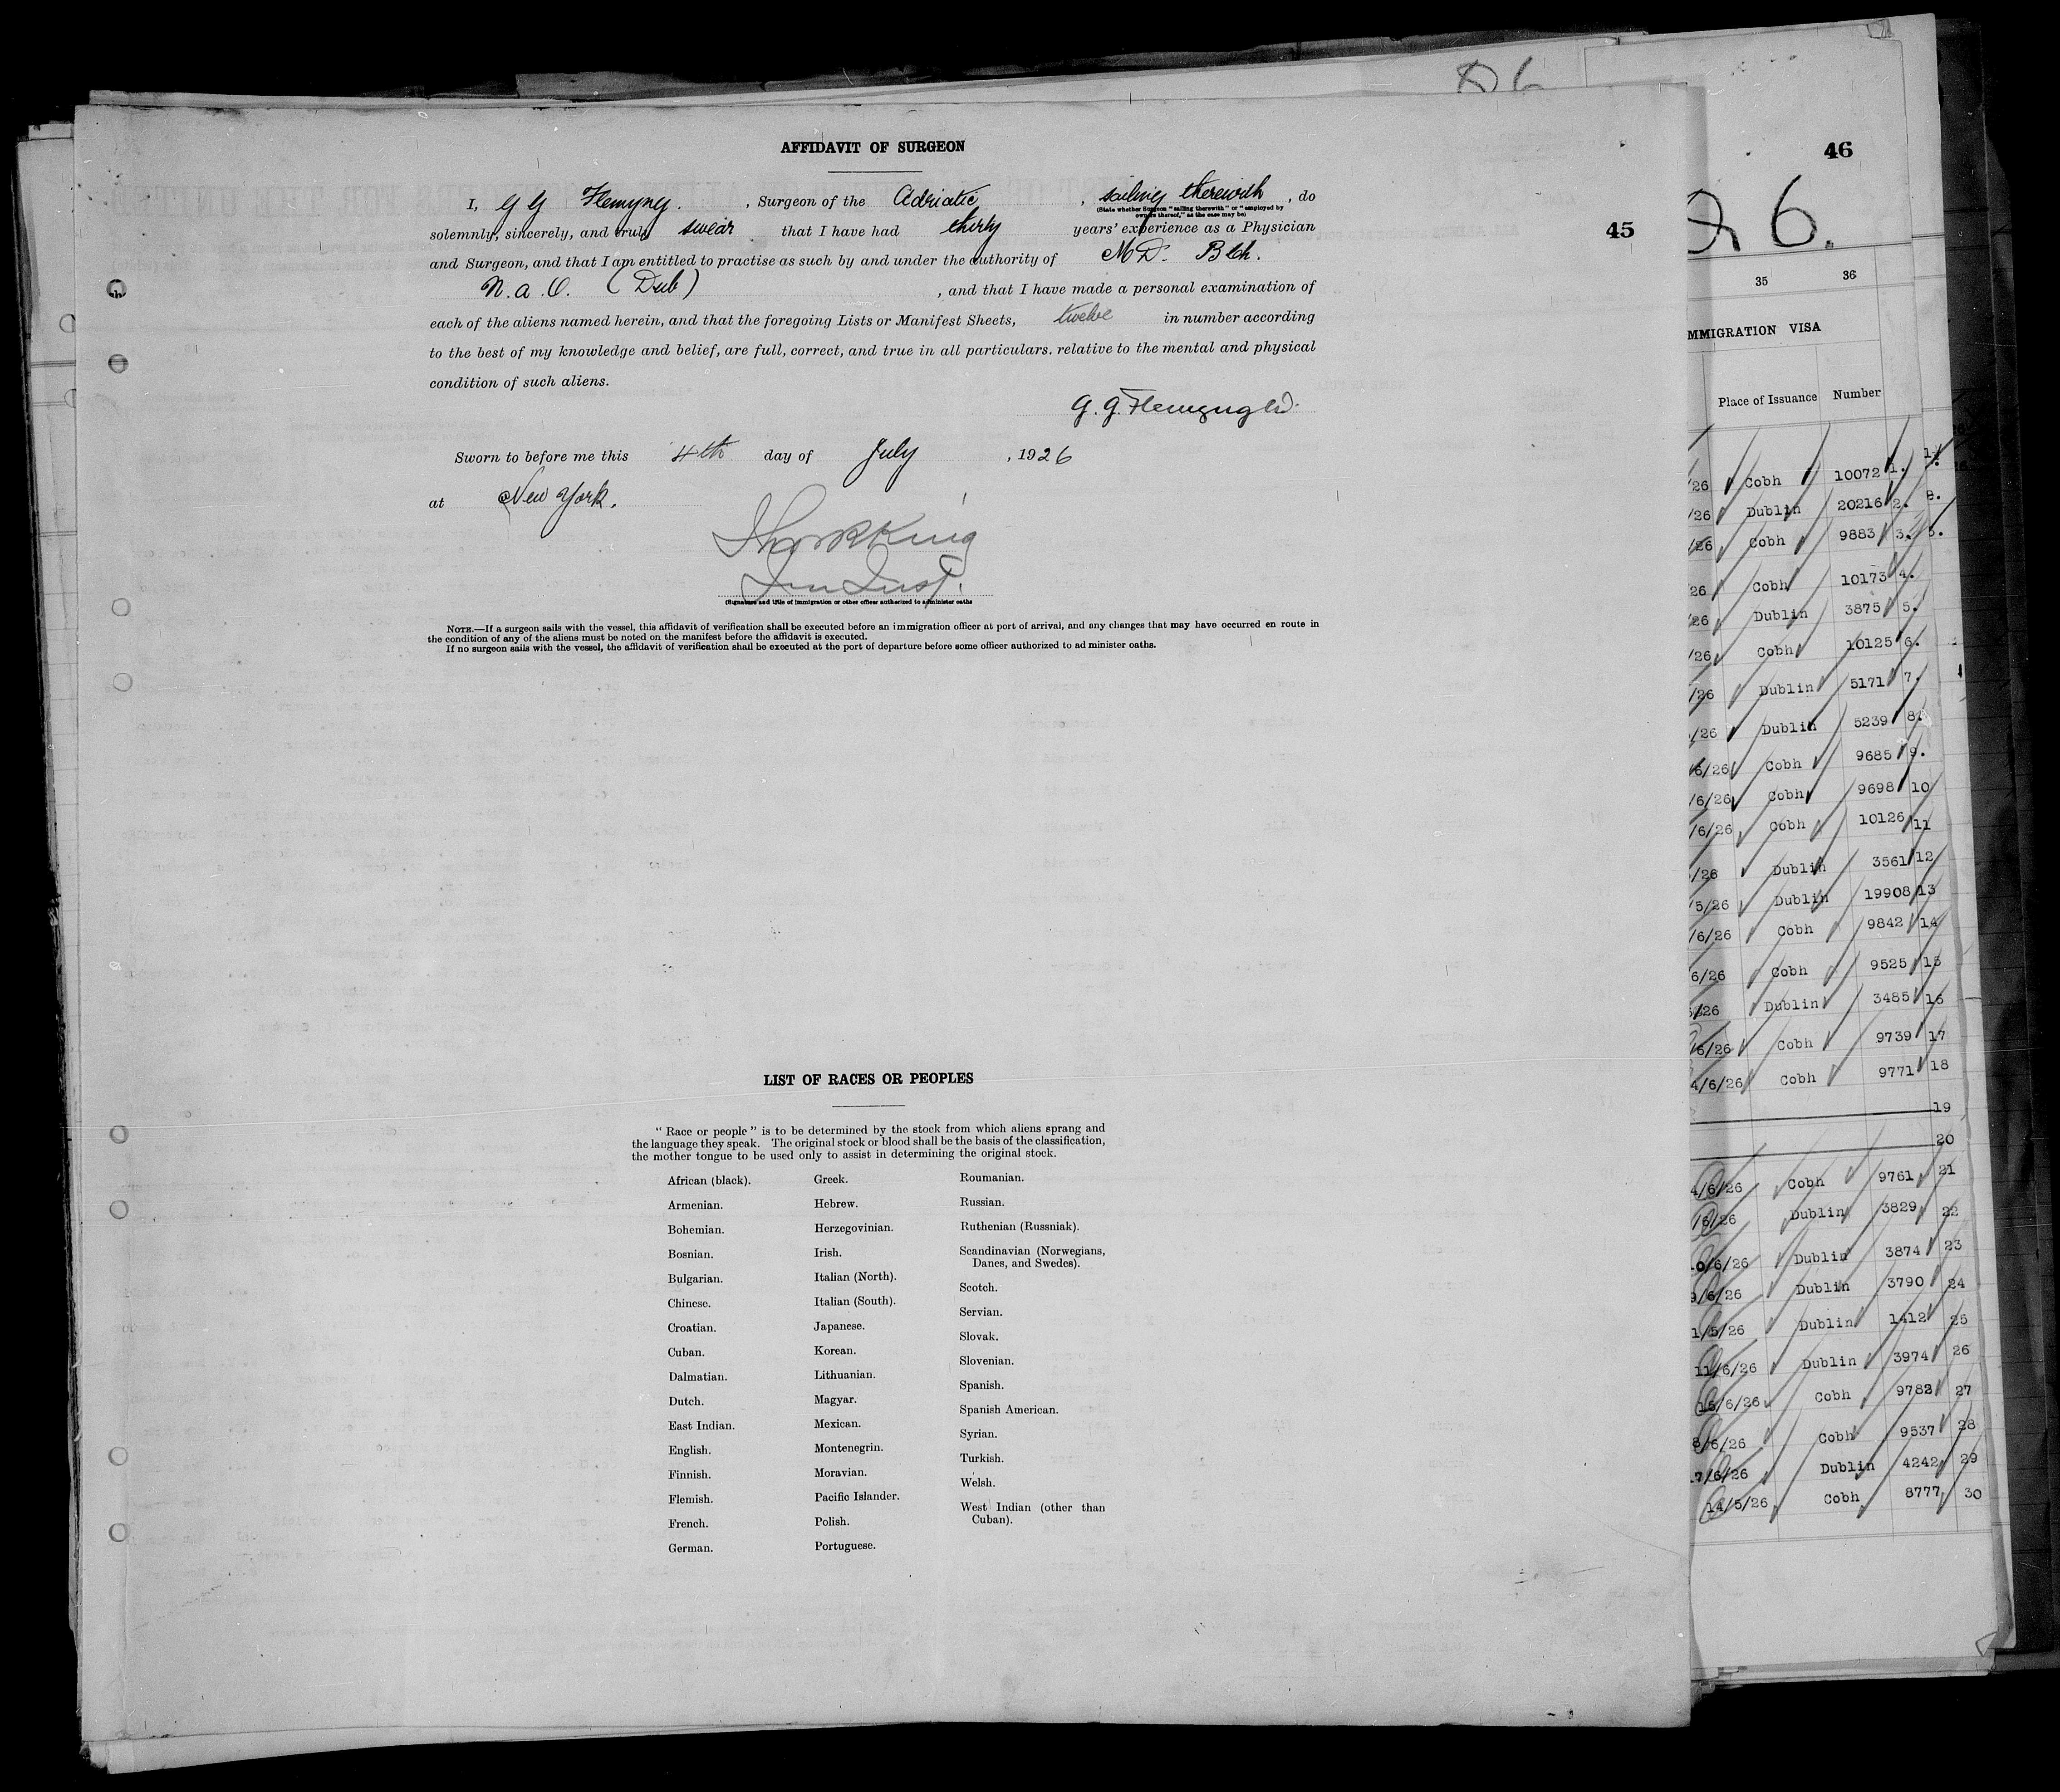 AFFIDAVIT OF SURGEON
I, G G Flemyng. , Surgeon of the Adriatic , sailing therewith , do
(State whether Surgeon "sailing therewith" or "employed by
owners thereof," as the case may be)
solemnly, sincerely, and truly swear that I have had thirty years' experience as a Physician
and Surgeon, and that I am entitled to practise as such by and under the authority of M D. B Ch.
(Dub) , and that I have made a personal examination of
each of the aliens named herein, and that the foregoing Lists or Manifest Sheets, twelve in number according
to the best of my knowledge and belief, are full, correct, and true in all particulars. relative to the mental and physical
condition of such aliens.
G. G. Flemyng
Sworn to before me this 4th day of July , 1926
at New York.
King
Imm Insp.
(Signature and title of immigration or other officer authorized to administer oaths
NOTE.—If a surgeon sails with the vessel, this affidavit of verification shall be executed before an immigration officer at port of arrival, and any changes that may have occurred en route in
the condition of any of the aliens must be noted on the manifest before the affidavit is executed.
If no surgeon sails with the vessel, the affidavit of verification shall be executed at the port of departure before some officer authorized to administer oaths.
45
LIST OF RACES OR PEOPLES
"Race or people" is to be determined by the stock from which aliens sprang and
the language they speak. The original stock or blood shall be the basis of the classification,
the mother tongue to be used only to assist in determining the original stock.
African (black).
Armenian.
Bohemian.
Bosnian.
Bulgarian.
Chinese.
Croatian.
Cuban.
Dalmatian.
Dutch.
East Indian.
English.
Finnish.
Flemish.
French.
German.
Greek.
Hebrew.
Herzegovinian.
Irish.
Italian (North).
Italian (South).
Japanese.
Korean.
Lithuanian.
Magyar.
Mexican.
Montenegrin.
Moravian.
Pacific Islander.
Polish.
Portuguese.
Roumanian.
Russian.
Ruthenian (Russniak).
Scandinavian (Norwegians,
Danes, and Swedes).
Scotch.
Servian.
Slovak.
Slovenian.
Spanish.
Spanish American.
Syrian.
Turkish.
Welsh.
West Indian (other than
Cuban).
46
26.
35 36
MMIGRATION VISA
Place of Issuance Number
/26 Cobh 10072 1.
/26 Dublin 20216 2.
/26 Cobh 9883 3.
26 Cobh 10173 4.
/26 Dublin 3875 5.
/26 Cobh 10125 6.
/26 Dublin 5171 7.
/26 Dublin 5239 8.
6/26 Cobh 9685 9.
/6/26 Cobh 9698 10
/6/26 Cobh 10126 11
/26 Dublin 3561 12
/5/26 Dublin 19908 13
/6/26 Cobh 9842 14
6/26 Cobh 9525 15
/26 Dublin 3485 16
/6/26 Cobh 9739 17
4/6/26 Cobh 9771 18
19
20
4/6/26 Cobh 9761 21
/6/26 Dublin 3829 22
0/6/26 Dublin 3874 23
9/6/26 Dublin 3790 24
1/5/26 Dublin 1412 25
11/6/26 Dublin 3974 26
15/6/26 Cobh 9782 27
8/6/26 Cobh 9537 28
7/6/26 Dublin 4242 29
14/5/26 Cobh 8777 30